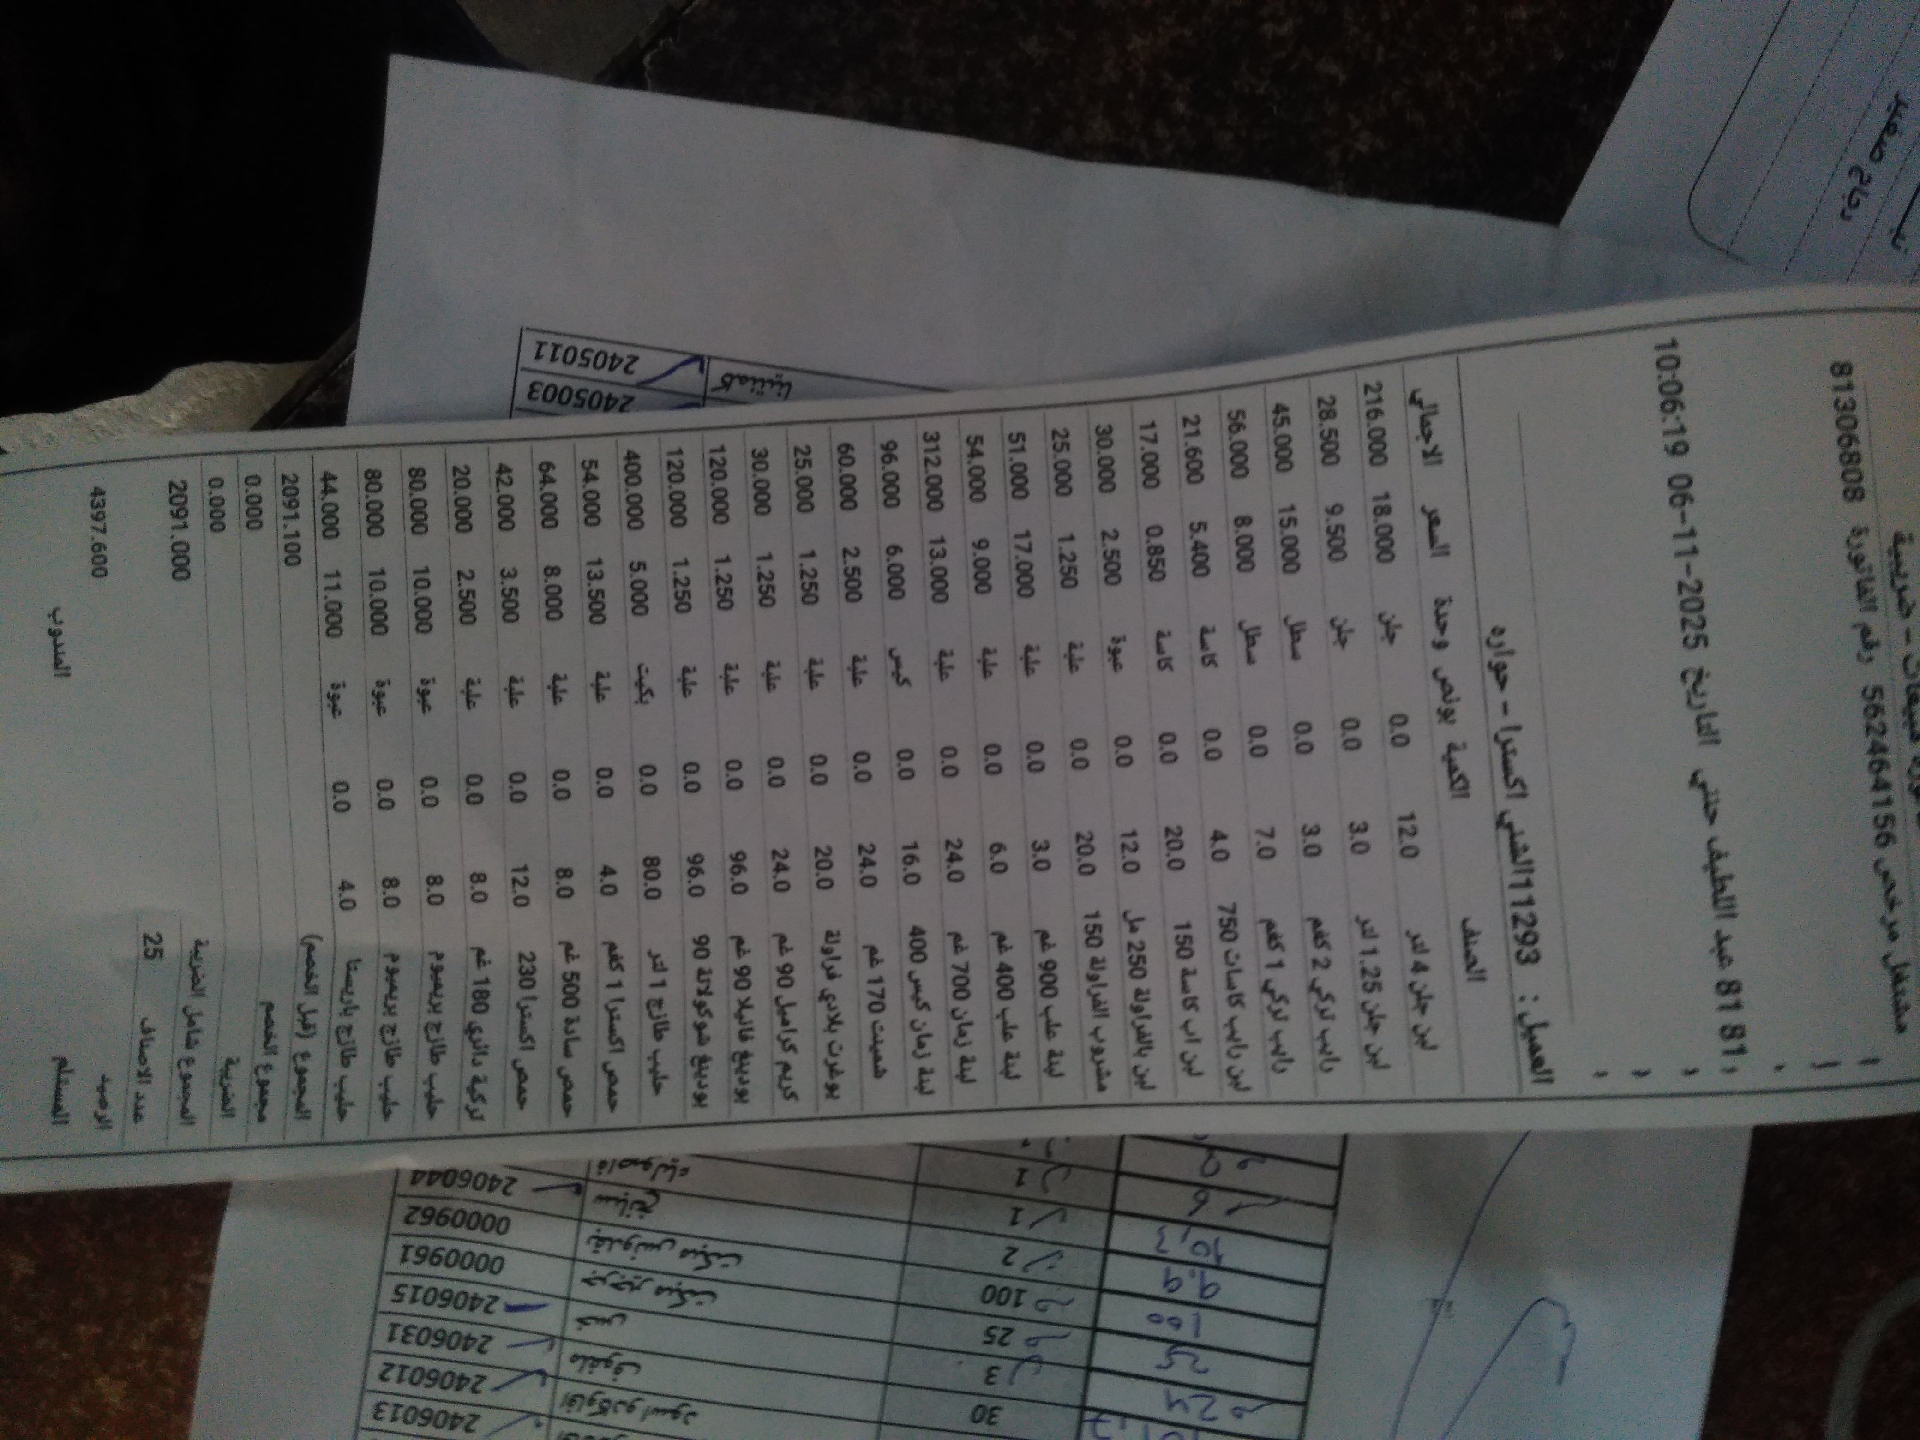 مشتغل مرخص 562464156 رقم الفاتورة 81306808
81 81 عبد اللطيف حنني التاريخ 2025-11-06 10:06:19
العميل : 11293الشني اكسترا - حواره
الصنف الكمية بونص وحدة السعر الاجمالي
لبن جلن 4 لتر 12.0 0.0 جلن 18.000 216.000
لبن جلن 1.25 لتر 3.0 0.0 جلن 9.500 28.500
رايب تركي 2 كغم 3.0 0.0 سطل 15.000 45.000
رايب تركي 1 كغم 7.0 0.0 سطل 8.000 56.000
لبن رايب كاسات 750 4.0 0.0 كاسة 5.400 21.600
لبن اب كاسة 150 20.0 0.0 كاسة 0.850 17.000
لبن بالفراولة 250 مل 12.0 0.0 عبوة 2.500 30.000
مشروب الفراولة 150 20.0 0.0 علبة 1.250 25.000
لبنة علب 900 غم 3.0 0.0 علبة 17.000 51.000
لبنة علب 400 غم 6.0 0.0 علبة 9.000 54.000
لبنة زمان 700 غم 24.0 0.0 علبة 13.000 312.000
لبنة زمان كيس 400 16.0 0.0 كيس 6.000 96.000
شمينت 170 غم 24.0 0.0 علبة 2.500 60.000
يوغرت بلادي فراولة 20.0 0.0 علبة 1.250 25.000
كريم كراميل 90 غم 24.0 0.0 علبة 1.250 30.000
بودينغ فانيلا 90 غم 96.0 0.0 علبة 1.250 120.000
بودينغ شوكولاتة 90 96.0 0.0 علبة 1.250 120.000
حليب طازج 1 لتر 80.0 0.0 بكيت 5.000 400.000
حمص اكسترا 1 كغم 4.0 0.0 علبة 13.500 54.000
حمص سادة 500 غم 8.0 0.0 علبة 8.000 64.000
حمص اكسترا 230 12.0 0.0 علبة 3.500 42.000
تركية دالاري 180 غم 8.0 0.0 علبة 2.500 20.000
حليب طازج بريميوم 8.0 0.0 عبوة 10.000 80.000
حليب طازج بريميوم 8.0 0.0 عبوة 10.000 80.000
حليب طازج باريستا 4.0 0.0 عبوة 11.000 44.000
المجموع (قبل الخصم) 2091.100
مجموع الخصم 0.000
الضريبة 0.000
المجموع شامل الضريبة 2091.000
عدد الاصناف 25
الرصيد 4397.600
المستلم المندوب
2405011 كلمنتينا
2405003
2406044 سبانخ 1
0000962 بقدونس مبكت 2
0000961 جرجير مبكت 100
2406015 خس 25
2406031 ملفوف 3
2406012 افوكادو اسود 30
2406013